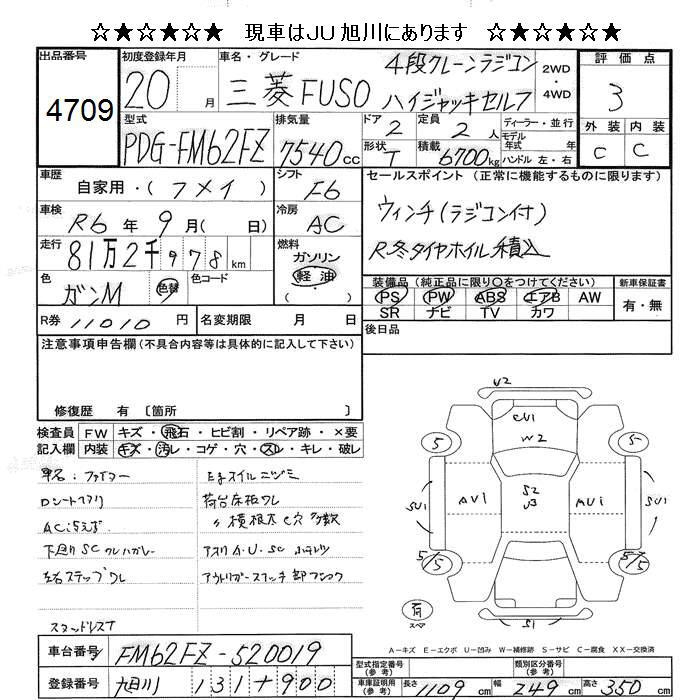 ☆★☆★☆★ 現車はJU旭川にあります ☆★☆★☆★
出品番号
4709
初度登録年月
20 月
車名・グレード
三菱FUSO
4段クレーンラジコン
ハイジャッキセルフ
2WD
・
4WD
評価点
3
外装 内装
C C
型式
PDG-FM62FZ
排気量
7540cc
ドア 2
定員 2人
形状 T
積載 6700kg
ディーラー・並行
モデル年式 年式
ハンドル 左・右
車歴
自家用・(
シフト
F6
車検
R6年 9月( 日)
冷房
AC
走行
81万2千978km
燃料
ガソリン
軽油
( ・ )
色
ガンM
色替
色コード
R券 11010円
名変期限 月 日
セールスポイント (正常に機能するものに限ります)
ウィンチ(ラジコン付)
R冬タイヤホイル積込
装備品(純正品に限り○をつけてください)
PS PW ABS エアB AW
SR ナビ TV カワ
新車保証書
有・無
後日品
注意事項申告欄(不具合内容等は具体的に記入して下さい)
修復歴 有 〔箇所 〕
検査員記入欄
FW キズ・飛石・ヒビ割・リペア跡・×要
内装 キズ・汚レ・コゲ・穴・スレ・キレ・破レ
車名:ファイター
下廻りSC
左右ステップワレ
荷台床板ワレ
〃横根太C穴多数
U2
CU1
W2
5
5
SU1
AU1
S2
U3
AU1
SU1
5/5
5/5
有
スペア
S1
A-キズ E-エクボ U-凹み W-補修跡 S-サビ C-腐食 XX-交換済
車台番号 FM62FZ-520019
登録番号 旭川 131 + 900
型式指定番号(参考)
類別区分番号(参考)
車庫証明用(参考) 長さ 1109cm 幅 249cm 高さ 350cm